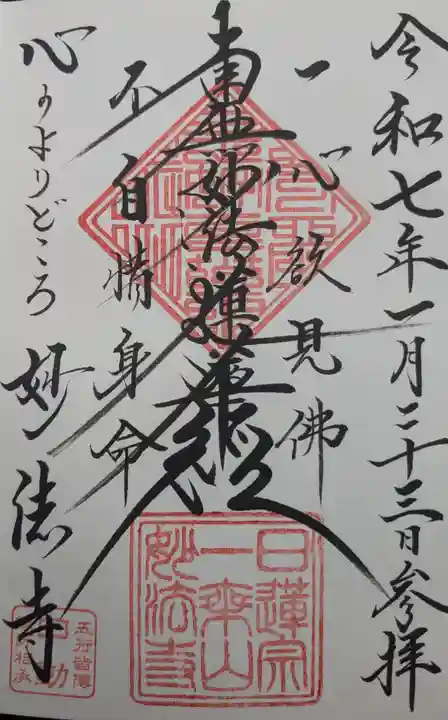 令和七年一月二十三日参拝
一心欲見佛
南無妙法蓮華經
不自惜身命
心のよりどころ 妙法寺
日蓮宗
一乗山
妙法寺